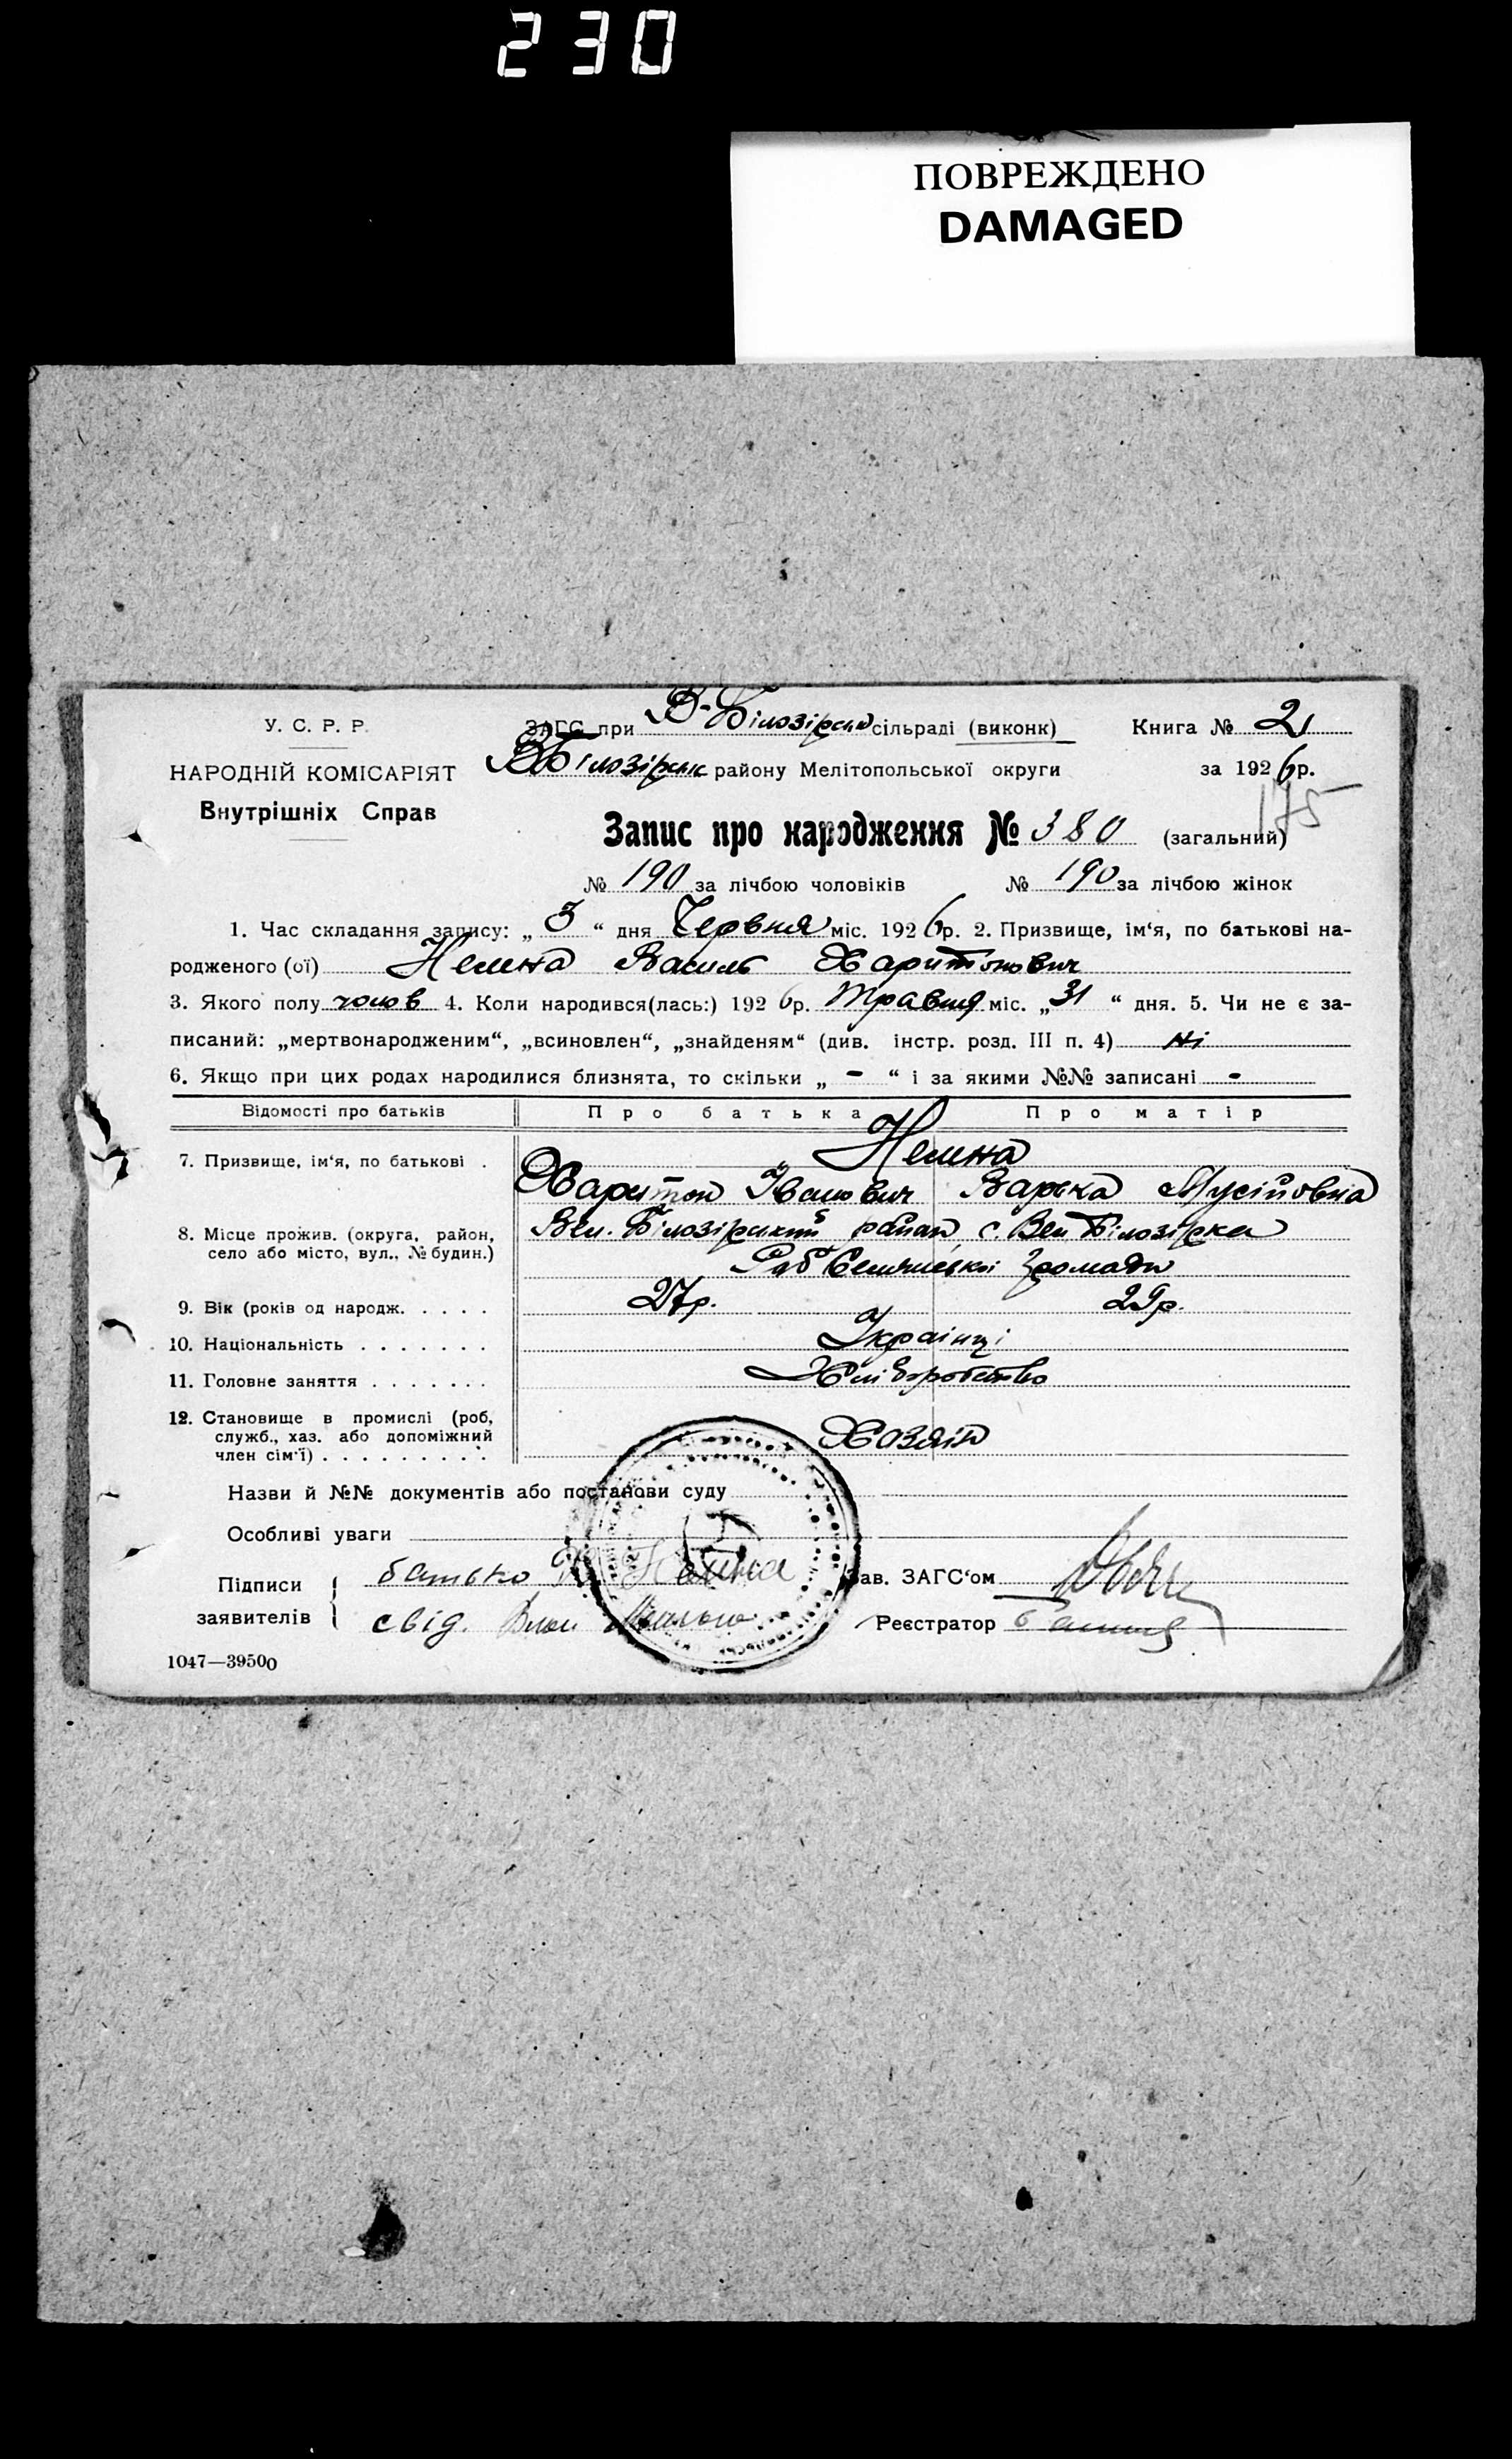 230
ПОВРЕЖДЕНО
DAMAGED
У. С. Р. Р.
НАРОДНІЙ КОМІСАРІЯТ
Внутрішніх Справ
ЗАГС при В-Білозірськ сільраді (виконк) Книга № 21
ВБілозірськ району Мелітопольської округи за 1926 р.
175
Запис про народження № 380 (загальний)
№ 190 за лічбою чоловіків № 190 за лічбою жінок
1. Час складання запису: „ 3 “ дня Червня міс. 1926 р. 2. Призвище, ім‘я, по батькові на-
родженого (ої) Нелина Василь Харитонович
3. Якого полу чолов 4. Коли народився(лась:) 1926 р. Травня міс. „ 31 “ дня. 5. Чи не є за-
писаний: „мертвонародженим“, „всиновлен“, „знайденям“ (див. інстр. розд. III п. 4) ні
6. Якщо при цих родах народилися близнята, то скільки „ - “ і за якими №№ записані -
Відомості про батьків Про батька Про матір
7. Призвище, ім‘я, по батькові . Нелина
Харитон Іванович Варька Мусійовна
8. Місце прожив. (округа, район, село або місто, вул., № будин.) Вел. Білозірський район, с. Вел Білозірка
Селянської громади
9. Вік (років од народж. . . . . 27р. 29р.
10. Національність . . . . . . . Українці
11. Головне заняття . . . . . . . Хліборобство
12. Становище в промислі (роб, служб., хаз. або допоміжний член сім‘ї) . . . . . . . . . Хозяїн
Назви й №№ документів або постанови суду
Особливі уваги
Підписи заявителів
батько Х Нелина
свід.
Зав. ЗАГС‘ом
Реєстратор
1047—39500